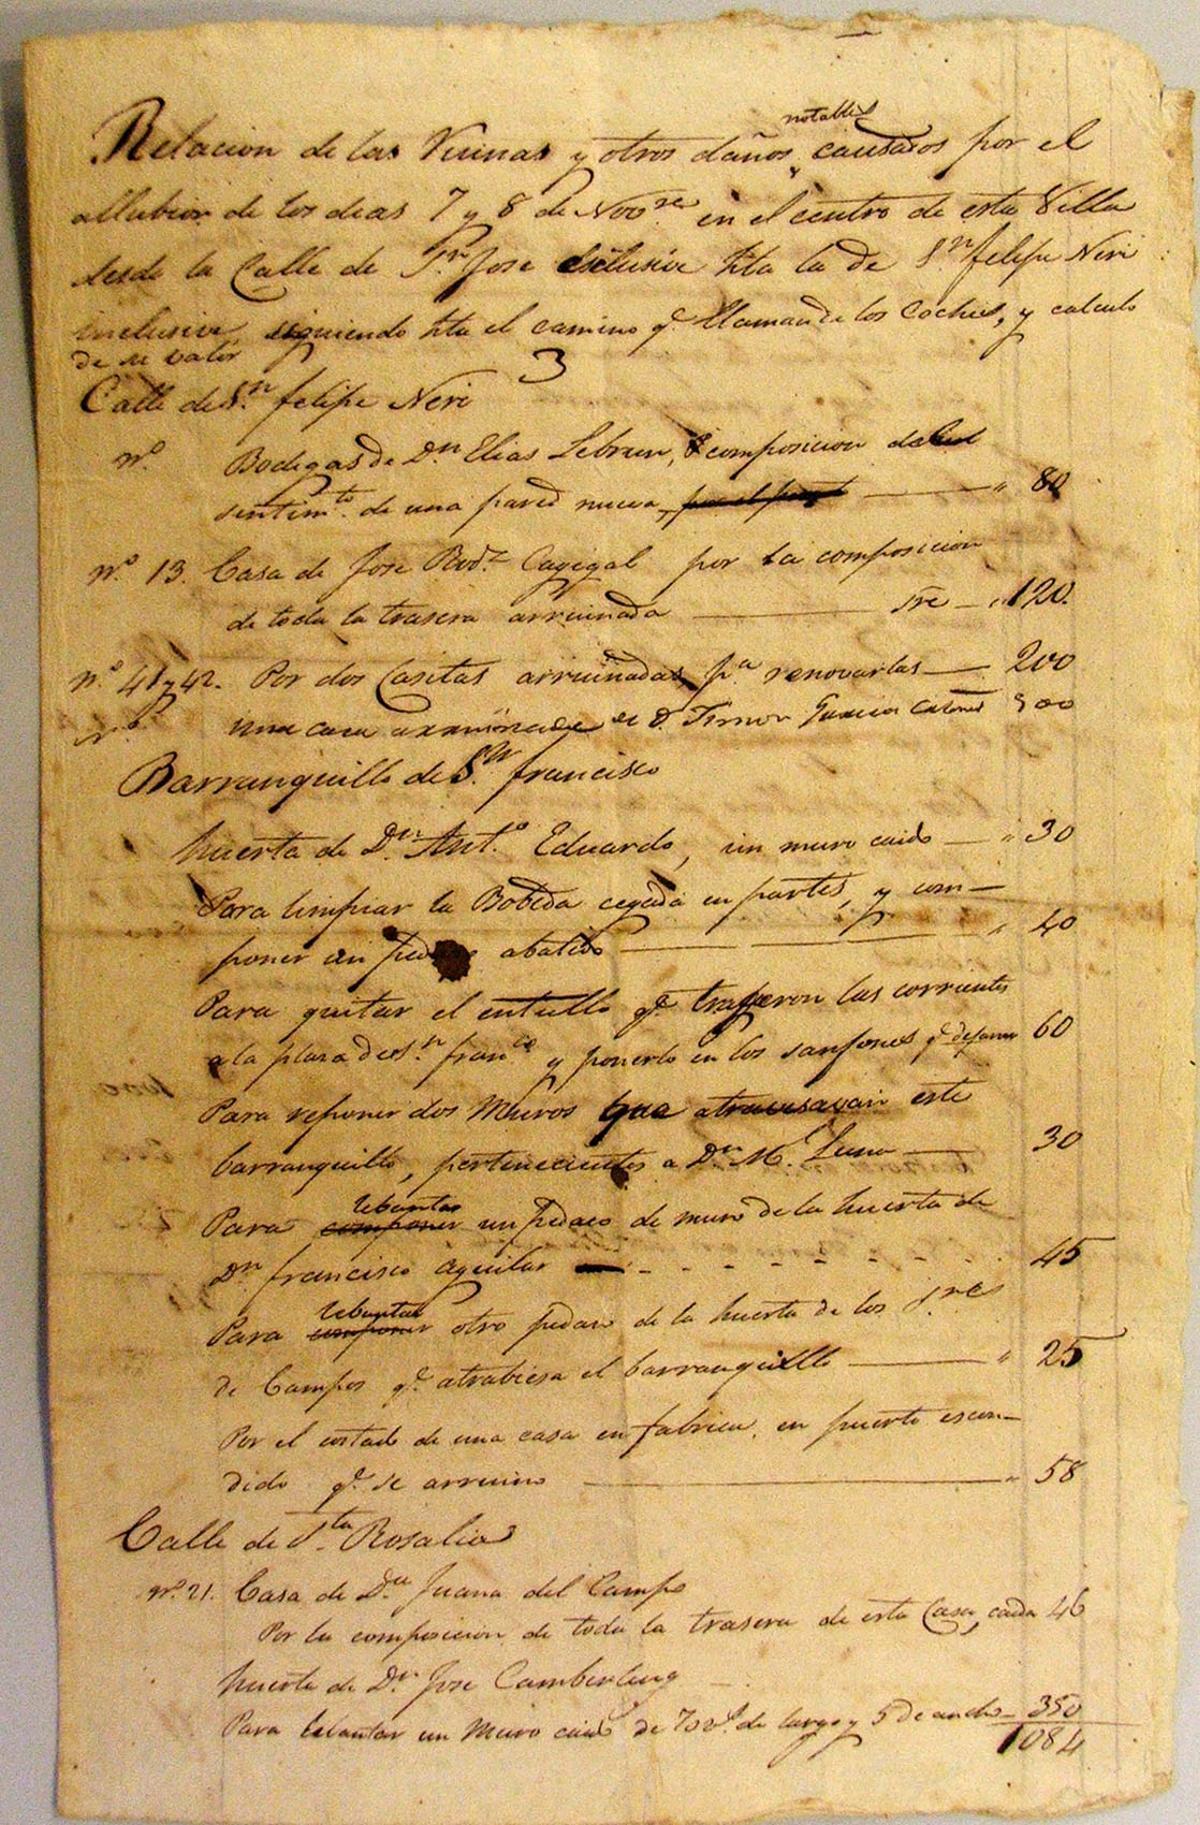 Relacion de las Ruinas y otros daños notables causados por el
allubion de los dias 7 y 8 de Nov.re en el centro de esta Villa
desde la Calle de S.n Jose esclusive hta la de S.n felipe Neri
inclusive, siguiendo hta el camino q.e llaman de los Coches, y calculo
de su valor
Calle de S.n felipe Neri
n.o Bodegas de D.n Elias Lebrun, composicion del
sentim.to de una pared nueva, " 80
n.o 13. Casa de Jose Rod.z Cagigal por la composicion
de toda la trasera arruinada " 120.
n.o 41 y 42. Por dos Casitas arruinadas, p.a renovarlas 200
una casa arruinada de D. Simon Garcia 300
Barranquillo de S.n francisco
huerta de D.n Ant.o Eduardo, un muro caido " 30
Para limpiar la Bobeda cegada en partes, y com-
poner un abatido " 40
Para quitar el entullo q.e trageron las corrientes
a la plaza de S.n fran.co y ponerlo en los sanjones q.e dejaron 60
Para reponer dos Muros que atravesavan este
barranquillo, pertenecientes a D.n M.l Luna 30
Para componer lebantar un pedazo de muro de la huerta de
D.n francisco Aguilar 45
Para componer lebantar otro pedaso de la huerta de los S.res
de Campos q.e atrabiesa el barranquillo " 25
Por el costado de una casa en fabrica, en puerto escon-
dido q.e se arruino " 58
Calle de S.ta Rosalia
n.o 21. Casa de D.a Juana del Campo
Por la composicion de toda la trasera de esta Casa, caida 46
huerta de D.n Jose Camberleng
Para lebantar un Muro caido de 70 v.s de largo y 5 de ancho 350
1084